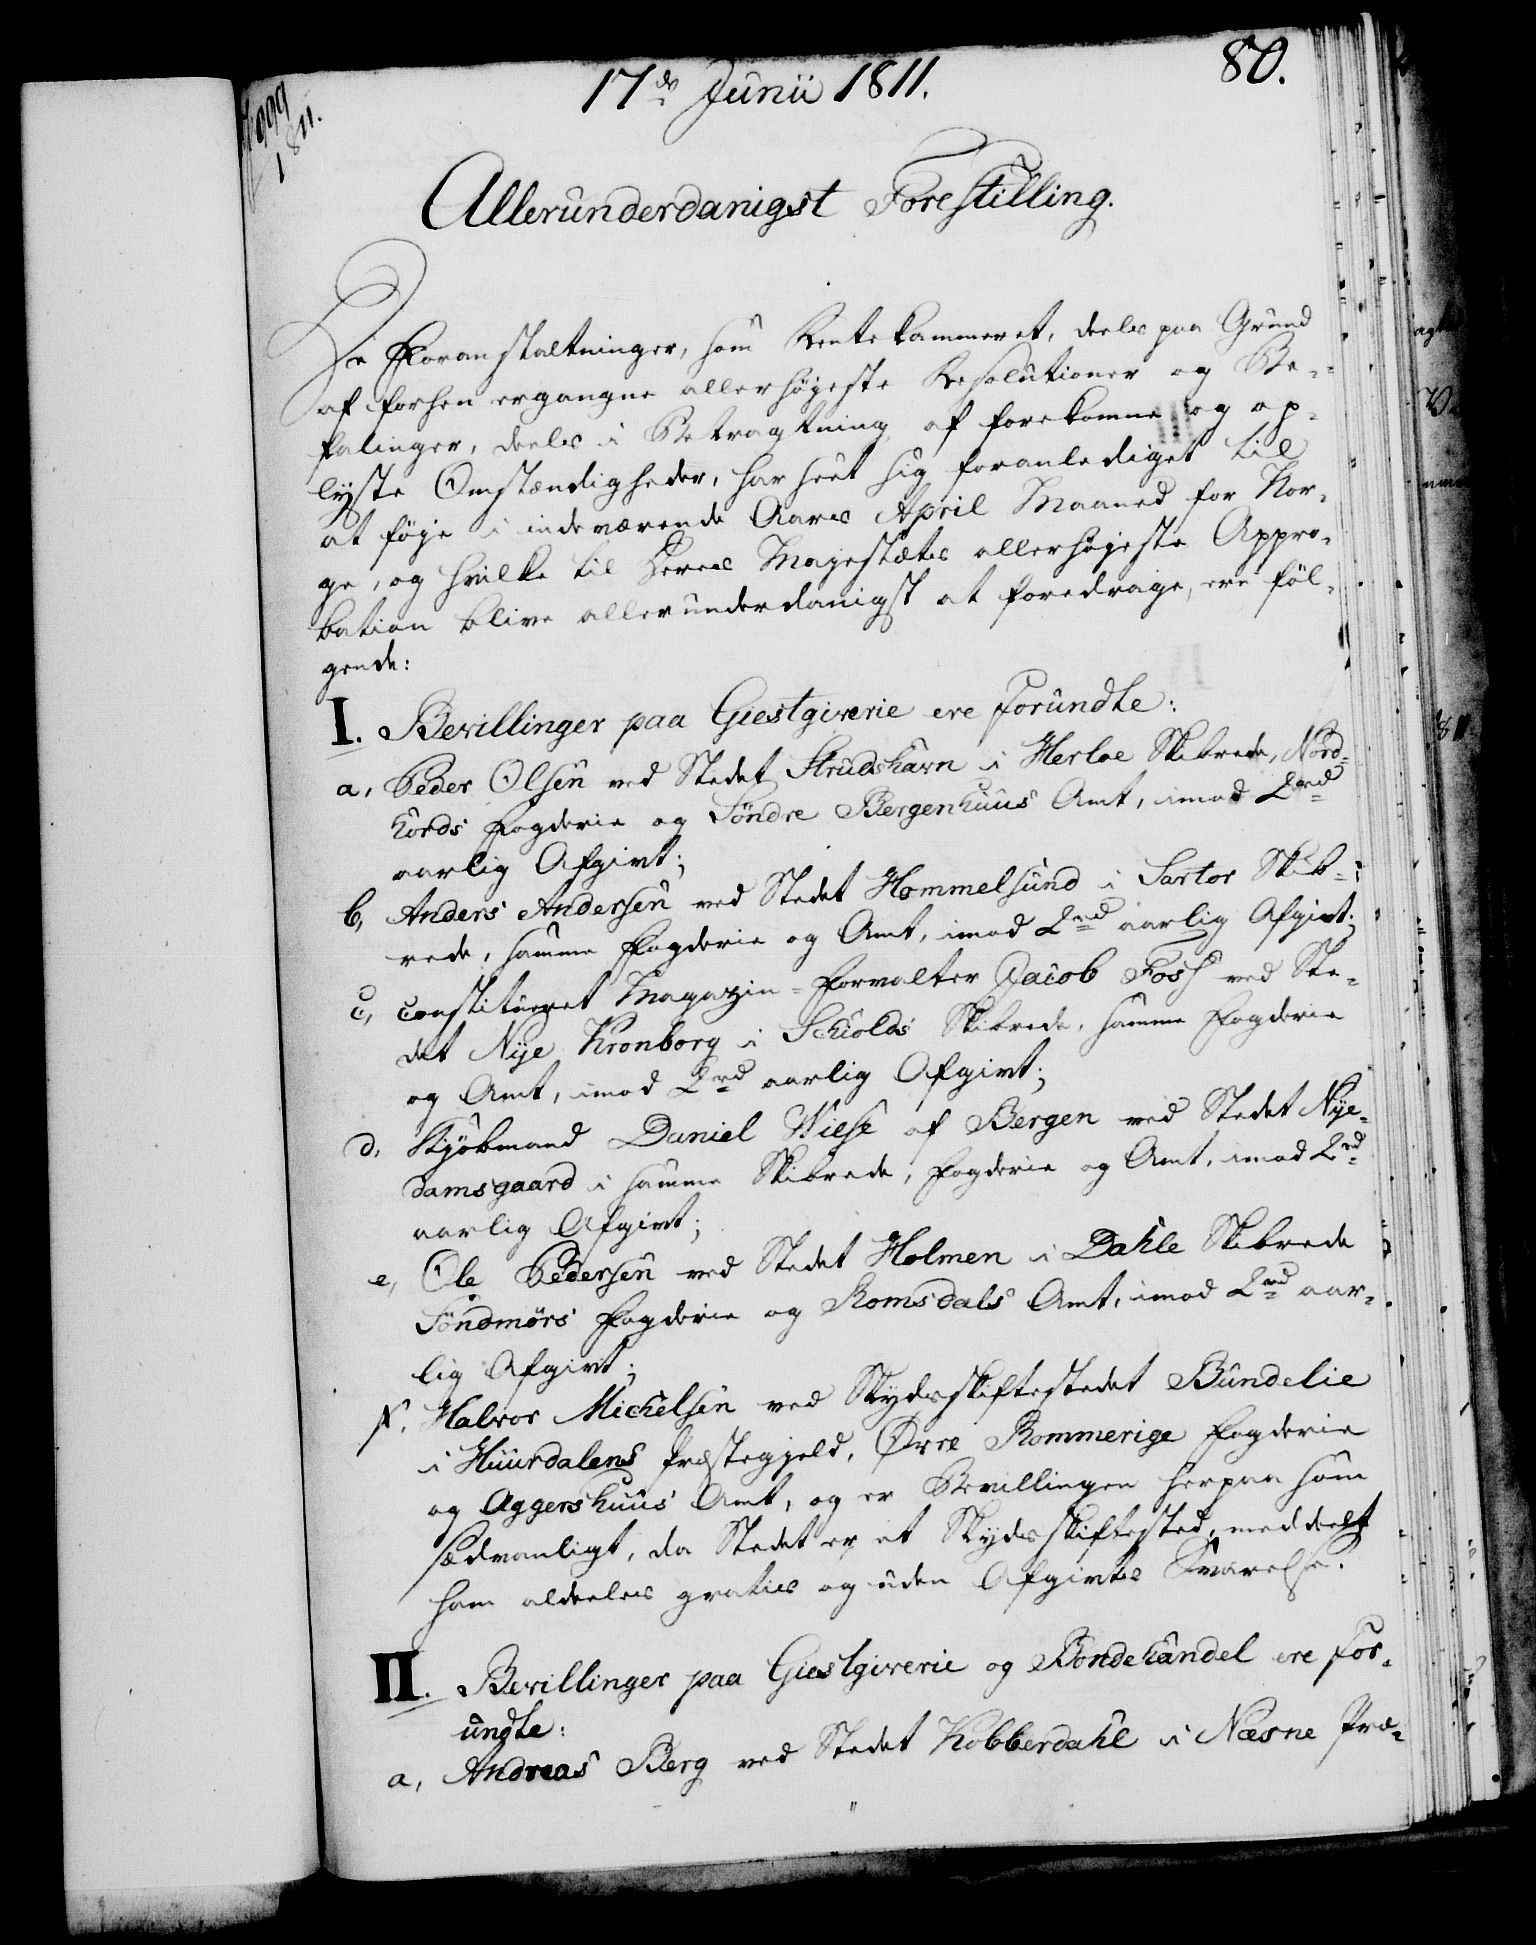 80.
17de Junii 1811.
999
1811.
Allerunderdanigst Forestilling.
De Foranstaltninger, som Rentekammeret, deels paa Grund
af forhen ergangne allerhøyeste Resolutioner og Be-
falinger, deels i Betragtning af forekomne og op-
lyste Omstændigheder, har seet sig foranlediget til
at føye i indeværende Aars April Maaned for Nor-
ge, og hvilke til Deres Majestæts allerhøyeste Appro-
bation blive allerunderdanigst at foredrage, ere føl-
gende:
I. Bevillinger paa Giestgiverie ere forundte:
a, Peder Olsen ved Stedet Strudshavn i Herloe Skibrede, Nord-
hords Fogderie og Söndre Bergenhuus Amt, imod 2rd
aarlig Afgivt;
b, Anders Andersen ved Stedet Hommelsund i Sartor Skib-
rede, samme Fogderie og Amt, imod 2rd aarlig Afgivt;
c, constitueret Magazin-Forvalter Jacob Foss ved Ste-
det Nye Kronborg i Schiolds Skibrede, samme Fogderie
og Amt, imod 2rd aarlig Afgivt;
d, Kjøbmand Daniel Wiese af Bergen ved Stedet Nye-
damsgaard i samme Skibrede, Fogderie og Amt, imod 2rd
aarlig Afgivt;
e, Ole Pedersen ved Stedet Holmen i Dahle Skibrede
Söndmörs Fogderie og Romsdals Amt, imod 2rd aar-
lig Afgivt;
f, Halvor Michelsen ved Skydsskiftestedet Bundelie
i Huurdalens Præstegjeld, Øvre Rommerige Fogderie
og Aggershuus Amt, og er Bevillingen herpaa som
sædvanligt, da Stedet er et Skydsskiftested, meddeelt
ham aldeeles gratis og uden Afgivts Svarelse.
II. Bevillinger paa Giestgiverie og Bondehandel ere for-
undte:
a, Andreas Berg ved Stedet Kobberdahl i Næsne Præ-